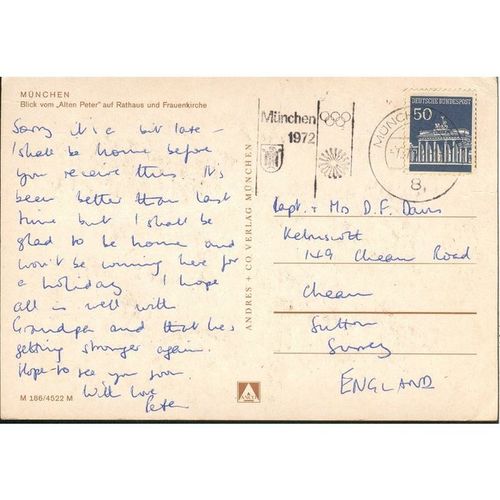 MÜNCHEN
Blick vom „Alten Peter" auf Rathaus und Frauenkirche
Sorry it's a bit late -
I shall be home before
you receive this. It's
been better than last
time but I shall be
glad to be home and
won't be coming here for
a holiday. I hope
all is well with
Grandpa and that he's
getting stronger again.
Hope to see you soon.
With love
Peter
M 186/4522 M
ANDRES + CO VERLAG MÜNCHEN
München
1972
MÜNCH
8
DEUTSCHE BUNDESPOST
50
Capt. + Mrs D.F. Davis
Kelmscott
149 Cheam Road
Cheam
Sutton
Surrey
ENGLAND